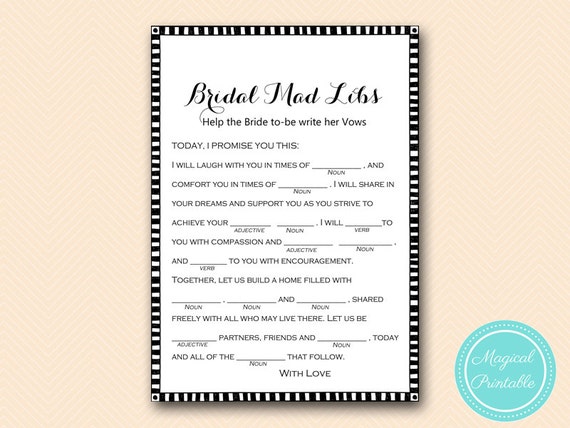 Bridal Mad Libs
Help the Bride to-be write her Vows
TODAY, I PROMISE YOU THIS:
I WILL LAUGH WITH YOU IN TIMES OF __________ , AND
NOUN
COMFORT YOU IN TIMES OF __________ . I WILL SHARE IN
NOUN
YOUR DREAMS AND SUPPORT YOU AS YOU STRIVE TO
ACHIEVE YOUR ________ ________ . I WILL ________ TO
ADJECTIVE NOUN VERB
YOU WITH COMPASSION AND __________ __________ ,
ADJECTIVE NOUN
AND ________ TO YOU WITH ENCOURAGEMENT.
VERB
TOGETHER, LET US BUILD A HOME FILLED WITH
__________ , __________ AND __________ , SHARED
NOUN NOUN NOUN
FREELY WITH ALL WHO MAY LIVE THERE. LET US BE
________ PARTNERS, FRIENDS AND __________ , TODAY
ADJECTIVE NOUN
AND ALL OF THE __________ THAT FOLLOW.
NOUN
WITH LOVE
Magical
Printable